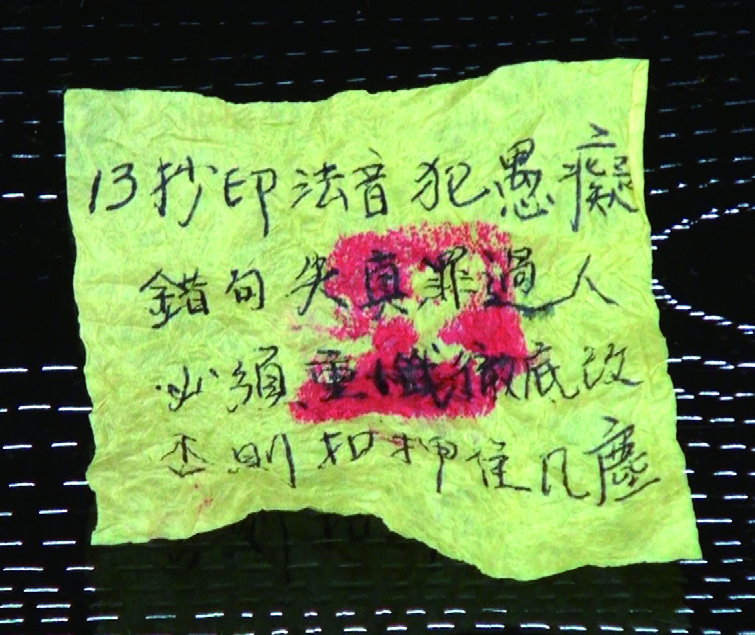 13抄印法音犯愚癡
錯句失真罪過人
必須重懺徹底改
否則扣押住凡塵